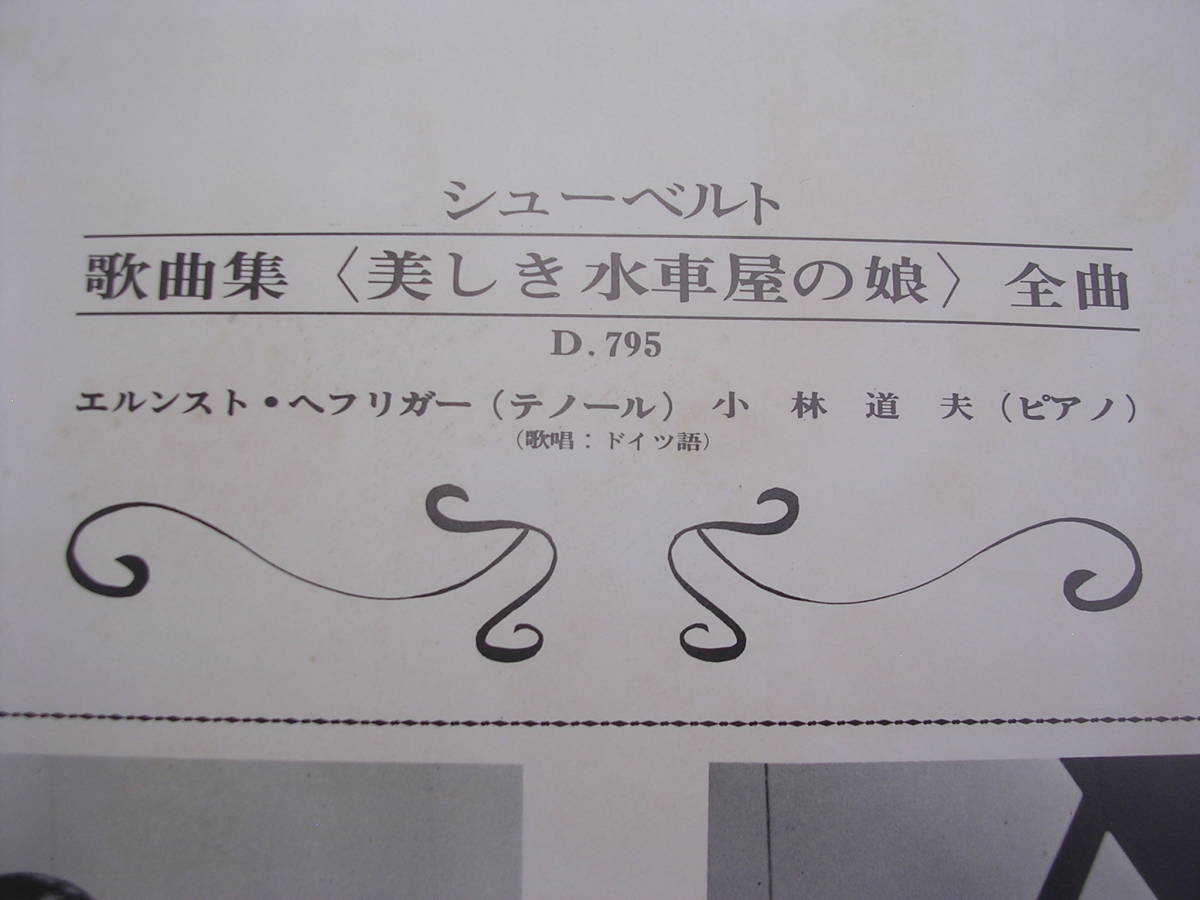 シューベルト
歌曲集〈美しき水車屋の娘〉全曲
D.795
エルンスト・ヘフリガー(テノール) 小林道夫(ピアノ)
(歌唱:ドイツ語)